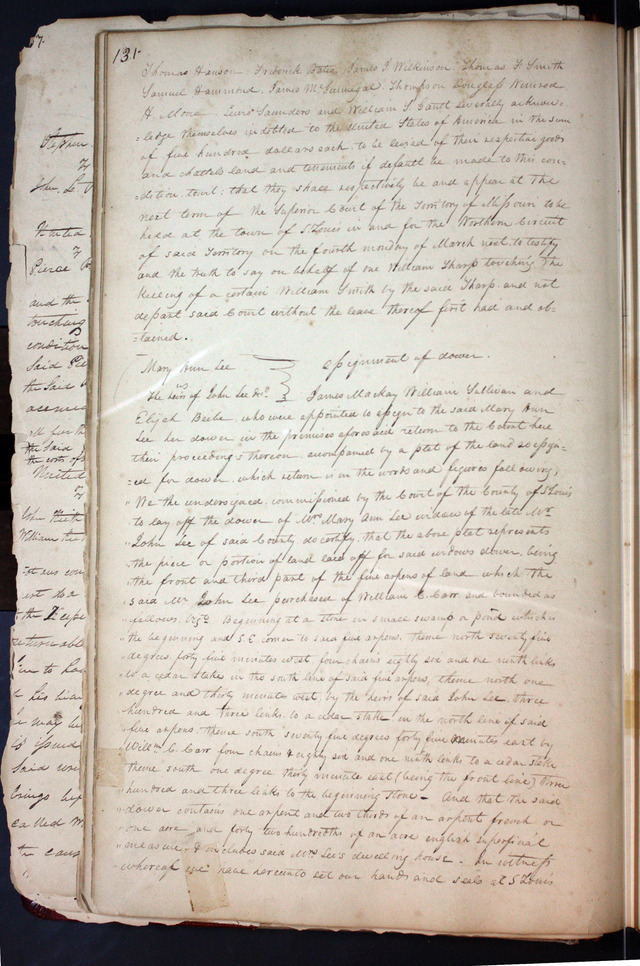 131.
Thomas Hanson Frederick Bates James J Wilkinson Thomas F Smith
Samuel Hammond James McGunnegal Thompson Douglass Nimrod
H. Moore Saunders and William S Gantt severally acknow-
-ledge themselves indebted to the United States of America in the sum
of five hundred dollars each to be levied of their respective goods
and chattels land and tenements if default be made to this con-
-dition, towit: that they shall respectively be and appear at the
next term of the Superior Court of the Territory of Missouri to be
held at the town of St Louis in and for the Northern Circuit
of said Territory on the fourth monday of March next to testify
and the truth to say on behalf of one William Tharp touching the
killing of a certain William Smith by the said Tharp and not
depart said Court without the leave thereof first had and ob-
-tained.
Mary Ann Lee
assignment of dower.
vs
The heirs of John Lee decd. James Mackay William Sullivan and
Elijah Beebe who were appointed to assign to the said Mary Ann
Lee her dower in the premises aforesaid return to the Court here
their proceedings thereon accompanied by a plat of the land assign-
-ed for dower, which return is in the words and figures following;
"We the undersigned, commissioned by the Court of the County of St Louis
"to lay off the dower of Mrs Mary Ann Lee widow of the late Mr
"John Lee of said County do certify, that the above plat represents
"the piece or portion of land laid off for said widows dower, being
"the front and third part of the five arpens of land which the
"said Mr John Lee purchased of William C. Carr and bounded as
"follows. Beginning at a stone in small swamp or pond which is
"the beginning and S.E. corner to said five arpens, thence north seventy five
"degrees forty five minutes west four chains eighty six and one ninth links
"to a cedar stake in the south line of said five arpens, thence north one
"degree and thirty minutes west, by the heirs of said John Lee, three
"hundred and three links to a cedar stake in the north line of said
"five arpens, thence south seventy five degrees forty five minutes east by
"Willm C. Carr four chains & eighty six and one ninth links to a cedar stake
"thence south one degree thirty minutes east (being the front line) three
"hundred and three links to the beginning stone - And that the said
"dower contains one arpent and two thirds of an arpent french or
"one acre and forty two hundredths of an acre english superficial
"measure, & includes said Mrs Lee's dwelling house - In witness
"whereof we have hereunto set our hands and seals at St Louis
57.
and the
touching
condition
Said
the Said
the Said
United
John
William
returnable
he may be
Said
brings
called
the caus